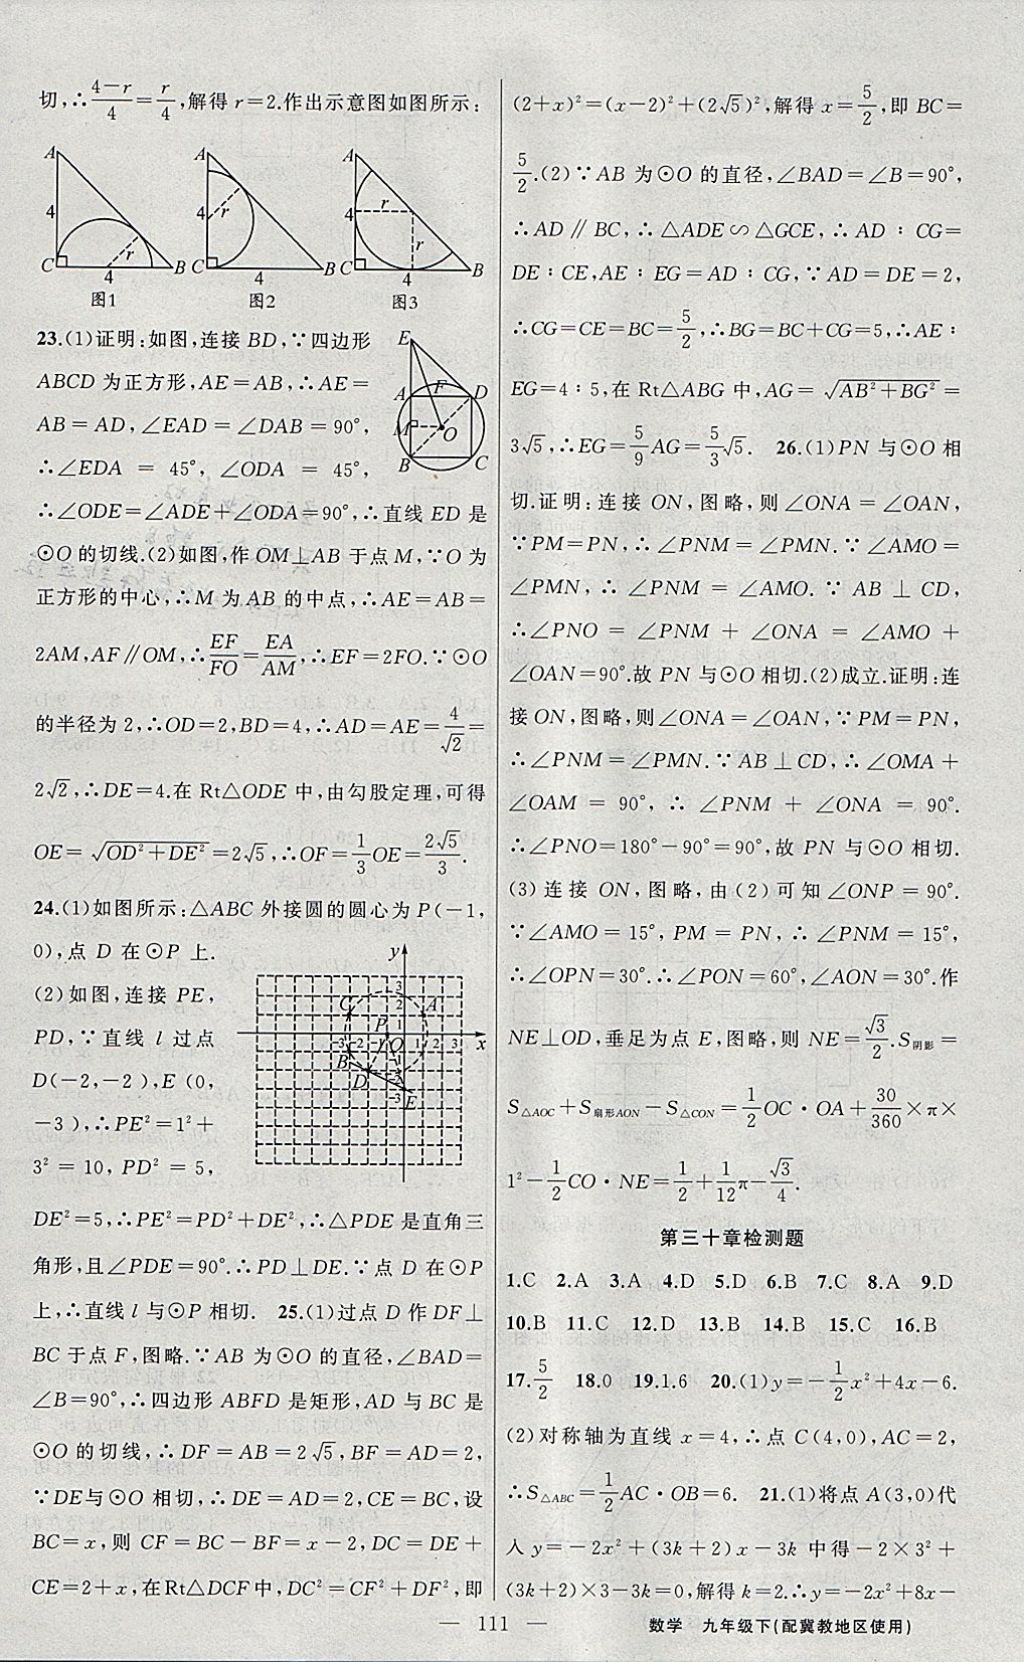 切,∴(4-r)/4=r/4,解得 r=2.作出示意图如图所示:
A
4
r
C
4
B
图1
A
4
r
C
4
B
图2
A
4
r
r
C
4
B
图3
23.(1)证明:如图,连接 BD,∵四边形
ABCD 为正方形,AE=AB,∴AE=
AB=AD,∠EAD=∠DAB=90°,
∴∠EDA = 45°, ∠ODA = 45°,
E
A
F
D
M
O
B
C
∴∠ODE=∠ADE+∠ODA=90°,∴直线 ED 是
⊙O 的切线.(2)如图,作 OM⊥AB 于点 M,∵O 为
正方形的中心,∴M 为 AB 的中点,∴AE=AB=
2AM,AF∥OM,∴EF/FO=EA/AM,∴EF=2FO.∵⊙O
的半径为 2,∴OD=2,BD=4,∴AD=AE=4/√2=
2√2,∴DE=4.在 Rt△ODE 中,由勾股定理,可得
OE=√(OD²+DE²)=2√5,∴OF=1/3OE=2√5/3.
24.(1)如图所示:△ABC 外接圆的圆心为 P(-1,
0),点 D 在⊙P 上.
(2)如图,连接 PE,
PD,∵直线 l 过点
D(-2,-2),E(0,
-3),∴PE²=1²+
3²=10,PD²=5,
y
3
2
1
C
A
P
O
-3 -2 -1
1 2 3
x
B
D
-1
-2
-3
E
DE²=5,∴PE²=PD²+DE²,∴△PDE 是直角三
角形,且∠PDE=90°.∴PD⊥DE.∵点 D 在⊙P
上,∴直线 l 与⊙P 相切. 25.(1)过点 D 作 DF⊥
BC 于点 F,图略.∵AB 为⊙O 的直径,∠BAD=
∠B=90°,∴四边形 ABFD 是矩形,AD 与 BC 是
⊙O 的切线,∴DF=AB=2√5,BF=AD=2,
∵DE与⊙O 相切,∴DE=AD=2,CE=BC,设
BC=x,则 CF=BC-BF=x-2,DC=DE+
CE=2+x,在Rt△DCF中,DC²=CF²+DF²,即
(2+x)²=(x-2)²+(2√5)²,解得 x=5/2,即 BC=
5/2.(2)∵AB 为⊙O 的直径,∠BAD=∠B=90°,
∴AD∥BC,∴△ADE∽△GCE,∴AD∶CG=
DE∶CE,AE∶EG=AD∶CG,∵AD=DE=2,
∴CG=CE=BC=5/2,∴BG=BC+CG=5,∴AE∶
EG=4∶5,在 Rt△ABG 中,AG=√(AB²+BG²)=
3√5,∴EG=5/9AG=5/3√5. 26.(1)PN 与⊙O 相
切.证明:连接 ON,图略,则∠ONA=∠OAN,
∵PM=PN,∴∠PNM=∠PMN.∵∠AMO=
∠PMN,∴∠PNM=∠AMO.∵AB⊥CD,
∴∠PNO = ∠PNM + ∠ONA = ∠AMO +
∠OAN=90°.故 PN 与⊙O 相切.(2)成立.证明:连
接 ON,图略,则∠ONA=∠OAN,∵PM=PN,
∴∠PNM=∠PMN.∵AB⊥CD,∴∠OMA+
∠OAM = 90°, ∴ ∠PNM + ∠ONA = 90°.
∴∠PNO=180°-90°=90°,故 PN 与⊙O 相切.
(3)连接 ON,图略,由(2)可知∠ONP=90°.
∵∠AMO=15°,PM=PN,∴∠PNM=15°,
∴∠OPN=30°.∴∠PON=60°,∠AON=30°.作
NE⊥OD,垂足为点 E,图略,则 NE=√3/2.S阴影=
S△AOC+S扇形AON-S△CON=1/2OC·OA+30/360×π×
1²-1/2CO·NE=1/2+1/12π-√3/4.
第三十章检测题
1.C 2.A 3.A 4.D 5.D 6.B 7.C 8.A 9.D
10.B 11.C 12.D 13.B 14.B 15.C 16.B
17.5/2 18.0 19.1.6 20.(1)y=-1/2x²+4x-6.
(2)对称轴为直线 x=4,∴点 C(4,0),AC=2,
∴S△ABC=1/2AC·OB=6. 21.(1)将点 A(3,0)代
入 y=-2x²+(3k+2)x-3k 中得-2×3²+
(3k+2)×3-3k=0,解得 k=2.∴y=-2x²+8x-
— 111 —
数学 九年级下(配冀教地区使用)